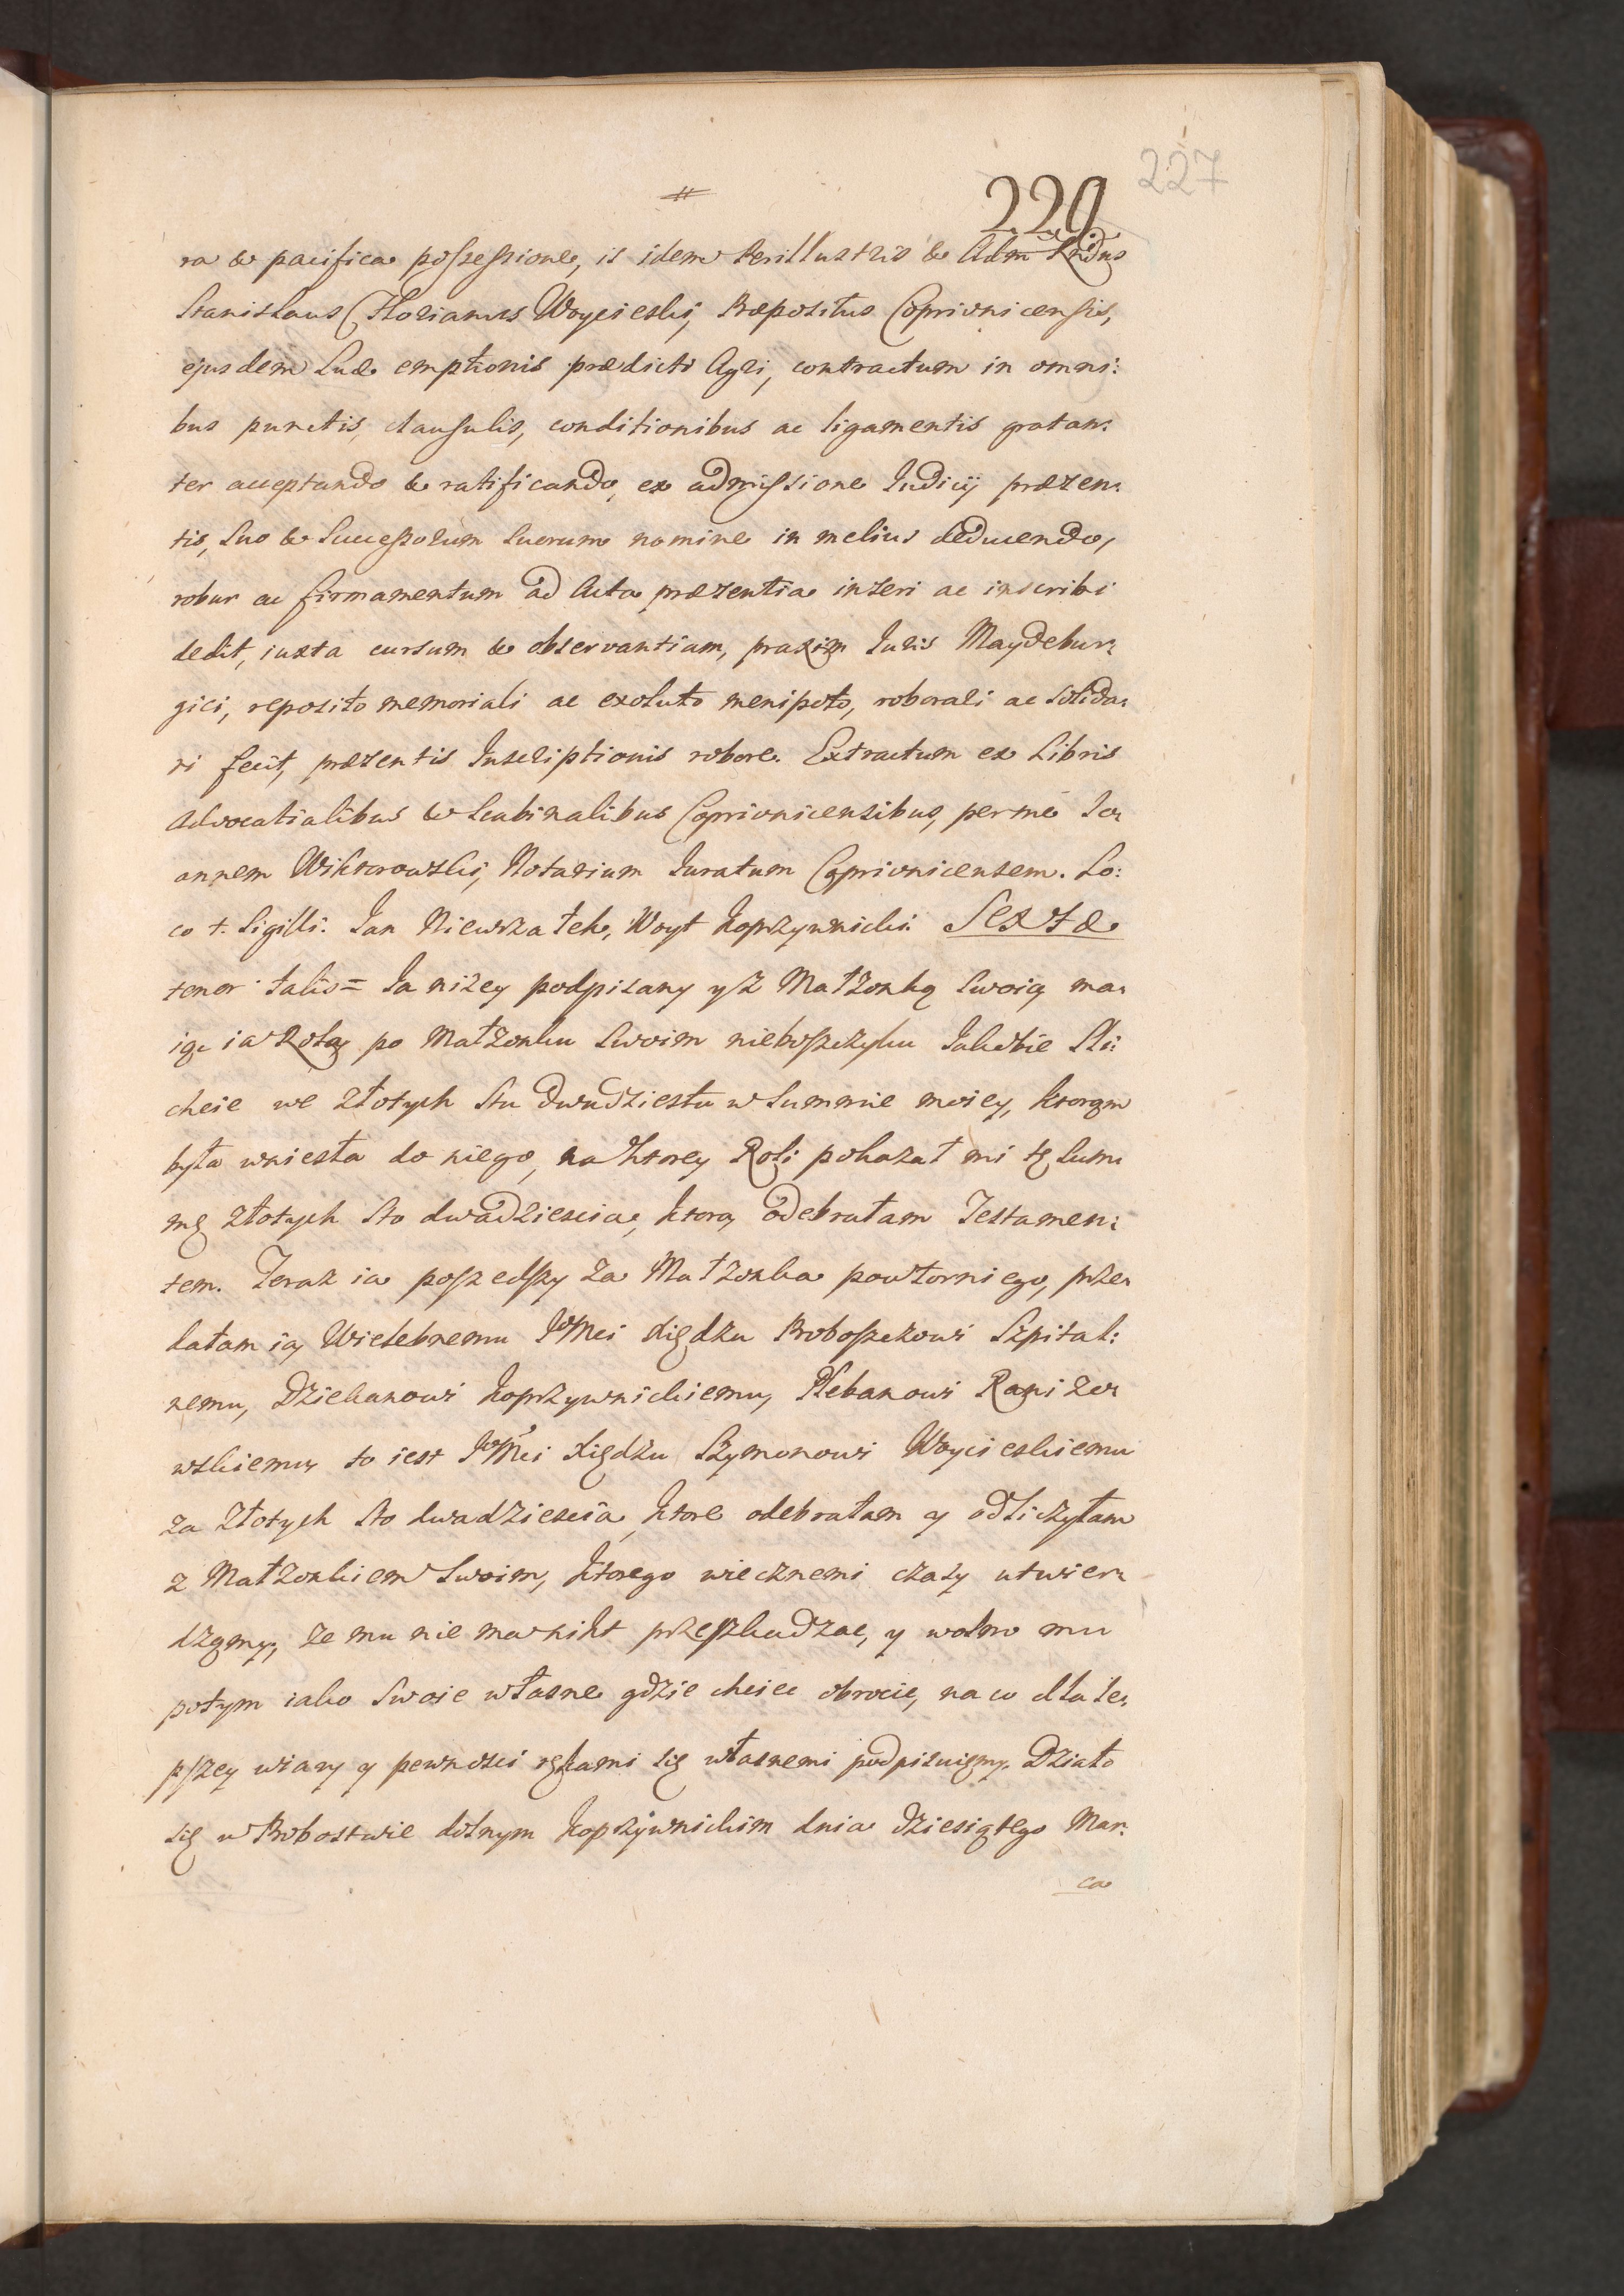 227
229.
#
ra & pacifica possessione, is idem Perillustris & Adm Rndus
Stanislaus Florianus Woycieski, Præpositus Coprivnicensis,
ejusdem suæ emptionis prædicti Agri, contractum in omni:
bus punctis, clausulis, conditionibus ac ligamentis gratan:
ter acceptando & ratificando, ex admissione Judicij præzen:
tis, suo & Successorum suorum nomine in melius deducendo,
robur ac firmamentum ad Acta præzentia inseri ac inscribi
dedit, iuxta cursum & observantiam, praxim Juris Maydebur:
gici, reposito memoriali ac exoluto menipoto, roborari ac solida:
ri fecit, præzentis Inscriptionis robore. Extractum ex Libris
Advocatialibus & Scabinalibus Coprivnicensibus, per me Jo:
annem Wiktorowski, Notarium Juratum Coprivnicensem. Lo:
co +. Sigilli. Jan Niewrzałek, Woyt Koprzywnicki. Sextæ
tenor talis = Ja niżey podpisany y z Małżonką swoią ma:
iąc ia Rolą po Małżonku swoim nieboszczyku Jakobie Sli:
chcie we złotych stu dwudziestu w summie moiey, ktorąm
była wniesła do niego, na ktorey Roli pokazał mi tę sum:
mę złotych sto dwadziescia, ktorą odebrałam Testamen:
tem. Teraz ia poszedszy za Małżonka powtorniego, prze:
dałam ią Wielebnemu JWMci Xiędzu Proboszczowi Szpital:
nemu, Dziekanowi Koprzywnickiemu, Plebanowi Raniżo:
wskiemu, to iest JWMci Xiędzu Szymonowi Woycieskiemu
za złotych sto dwadziescia, ktore odebrałam y odliczyłam
z Małżonkiem swoim, ktorego wiecznemi czasy utwier:
dzamy, że mu nie ma nikt przeszkadzac, y wolno mu
potym iako swoie własne gdzie chciec obrocic, na co dla le:
pszey wiary y pewności rękami się własnemi podpisuiemy. Działo
się w Probostwie dolnym Koprzywnickim dnia dziesiątego Mar:
ca